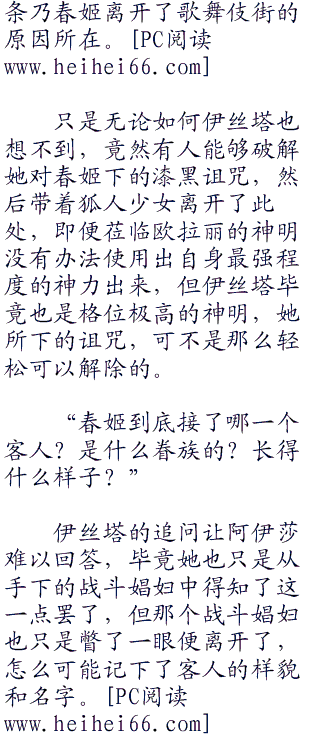 条乃春姬离开了歌舞伎街的
原因所在。[PC阅读
www.heihei66.com]
只是无论如何伊丝塔也
想不到，竟然有人能够破解
她对春姬下的漆黑诅咒，然
后带着狐人少女离开了此
处，即便莅临欧拉丽的神明
没有办法使用出自身最强程
度的神力出来，但伊丝塔毕
竟也是格位极高的神明，她
所下的诅咒，可不是那么轻
松可以解除的。
“春姬到底接了哪一个
客人？是什么眷族的？长得
什么样子？”
伊丝塔的追问让阿伊莎
难以回答，毕竟她也只是从
手下的战斗娼妇中得知了这
一点罢了，但那个战斗娼妇
也只是瞥了一眼便离开了，
怎么可能记下了客人的样貌
和名字。[PC阅读
www.heihei66.com]